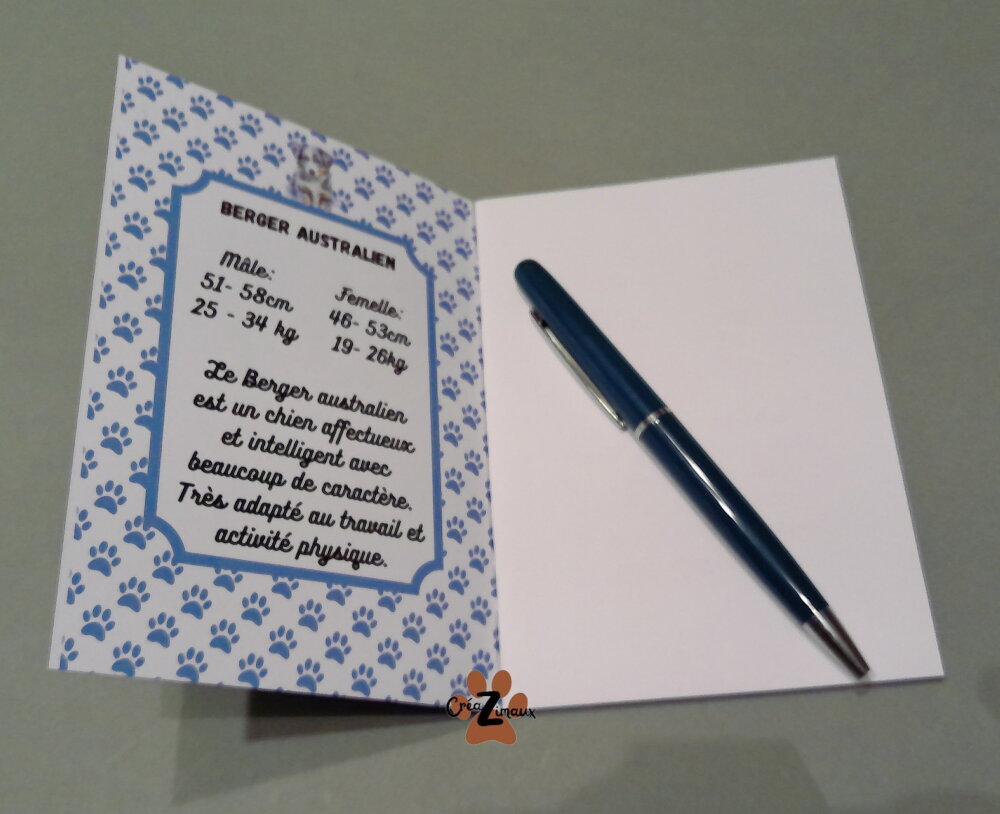 BERGER AUSTRALIEN
Mâle:
51- 58cm
25 - 34 kg
Femelle:
46- 53cm
19- 26kg
Le Berger australien
est un chien affectueux
et intelligent avec
beaucoup de caractère.
Très adapté au travail et
activité physique.
CréaZimaux